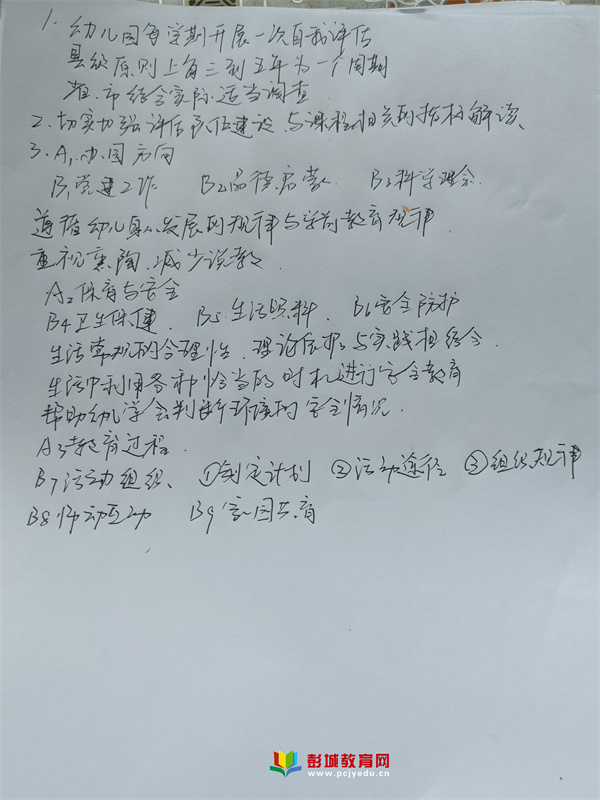 1. 幼儿园每学期开展一次自我评估
县级原则上每三到五年为一个周期
省、市结合实际适当调查
2. 切实加强评估队伍建设、与课程相关的指标解读、
3. A1.办园方向
B1党建工作 B2品德启蒙、 B3科学理念.
遵循幼儿身心发展的规律与学前教育规律.
重视熏陶.减少说教.
A2保育与安全
B4卫生保健. B5.生活照料. B6安全防护
生活常规的合理性. 理论依据与实践相结合.
生活中利用各种恰当的时机进行安全教育
帮助幼儿学会判断环境的安全情况.
A3教育过程.
B7活动组织、 ①制定计划 ②活动途径 ③组织规律
B8师幼互动 B9家园共育
彭城教育网
www.pcjyedu.cn